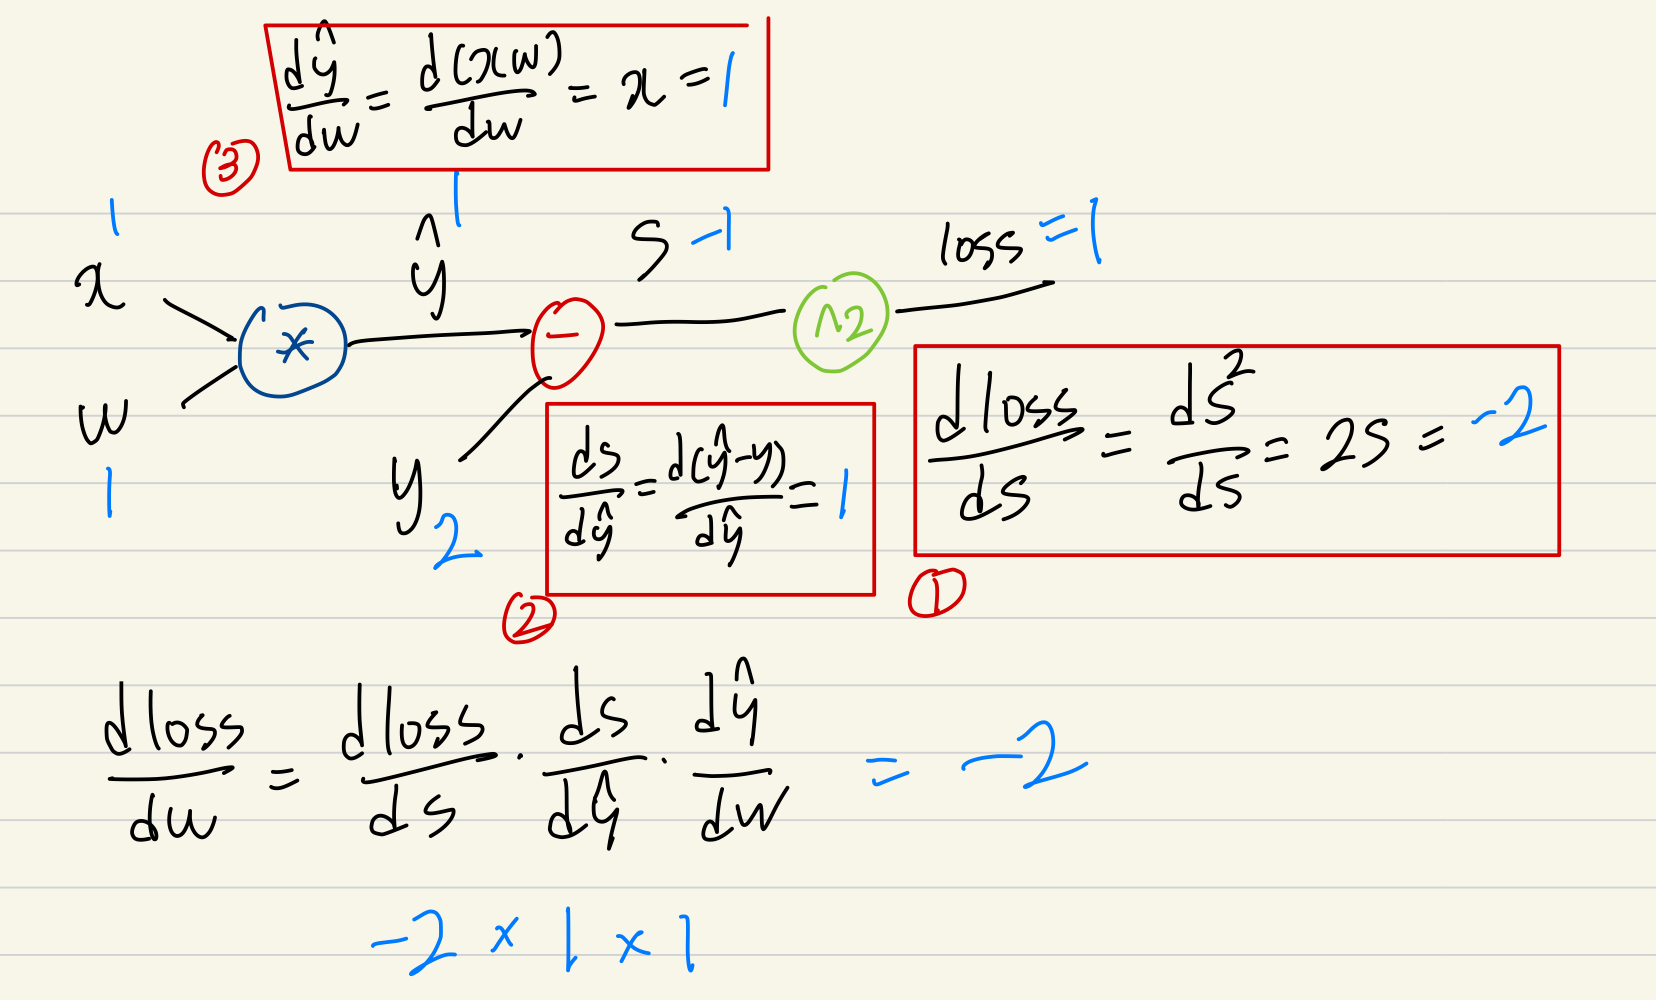 dŷ/dw = d(xw)/dw = x = 1
③
1
x
w
1
*
1
ŷ
-
y
2
s -1
^2
loss = 1
ds/dŷ = d(ŷ-y)/dŷ = 1
②
dloss/ds = ds²/ds = 2s = -2
①
dloss/dw = dloss/ds · ds/dŷ · dŷ/dw = -2
-2 × 1 × 1